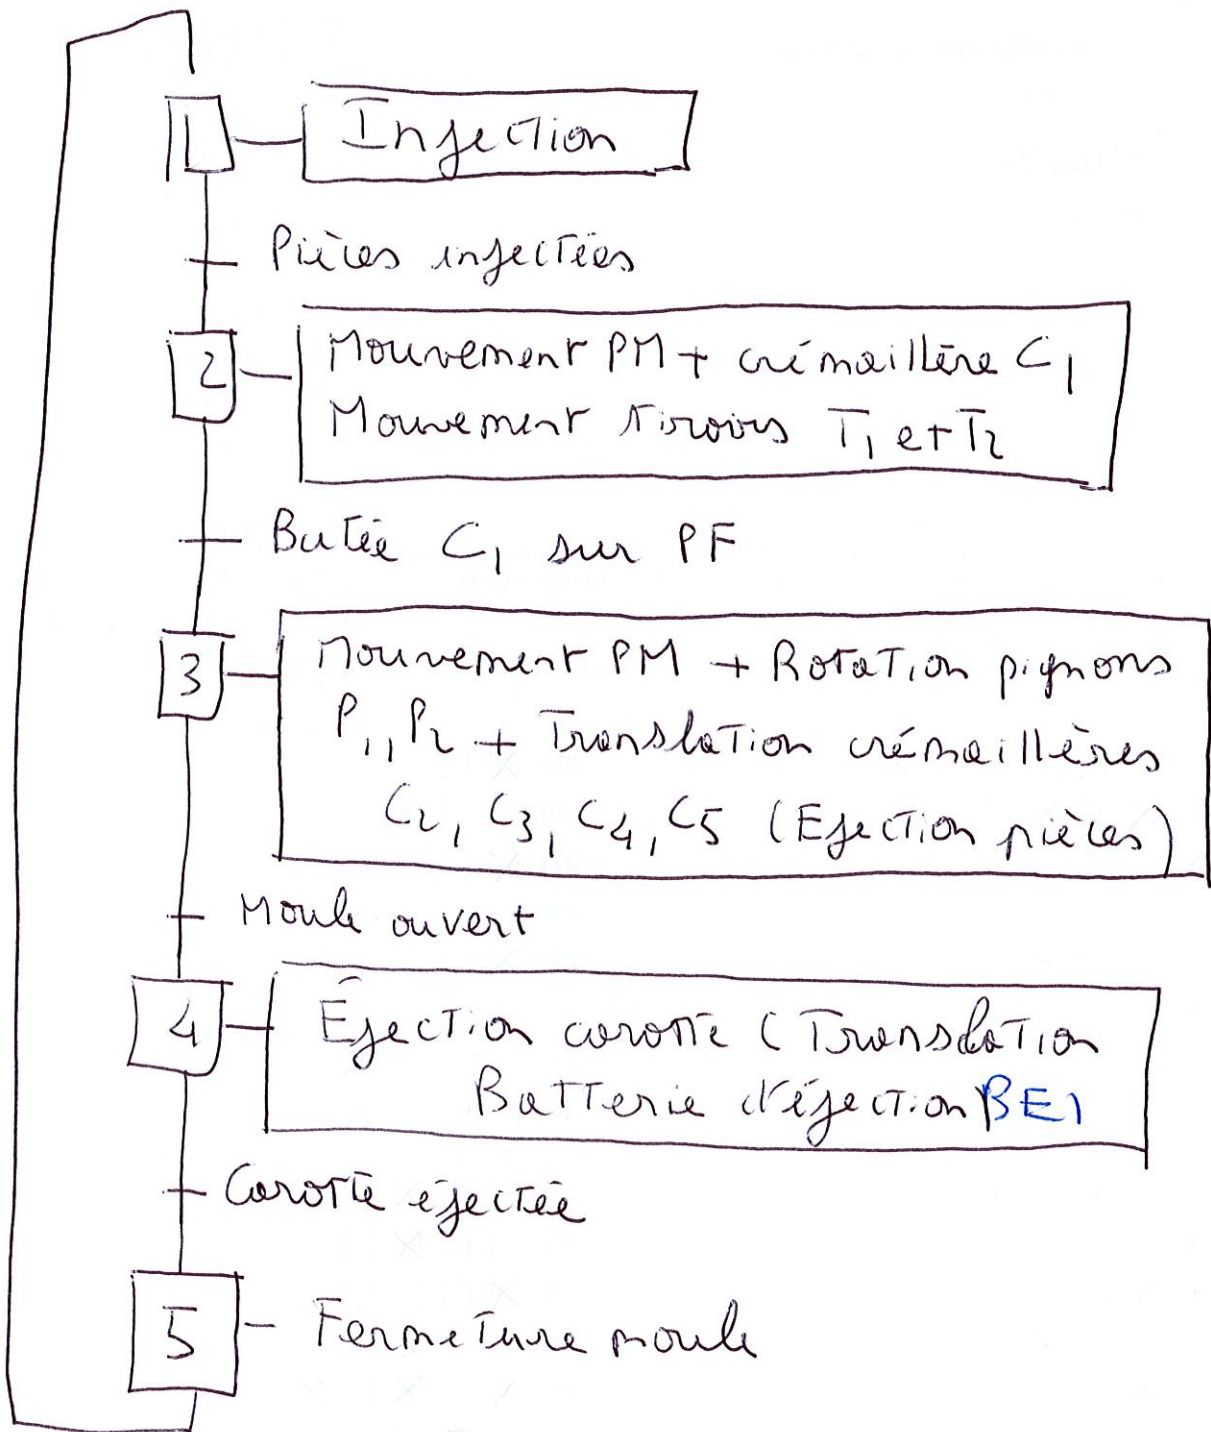 1
Injection
Pièces injectées
2
Mouvement PM + crémaillère C1
Mouvement tiroirs T1 et T2
Butée C1 sur PF
3
Mouvement PM + Rotation pignons
P1, P2 + Translation crémaillères
C2, C3, C4, C5 (Ejection pièces)
Moule ouvert
4
Éjection carotte (Translation
Batterie d'éjection) BE1
Carotte éjectée
5
Fermeture moule